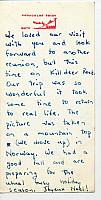 We loved our visit
with you and look
forward to another
reunion, but this
time on Killdeer Pond.
Our trip was so
wonderful it took
some time to return
to real life. The
picture was taken
on a mountain top
(we drove up) in
Norway. We had a
good fall and are
preparing for the
usual busy holiday
season.